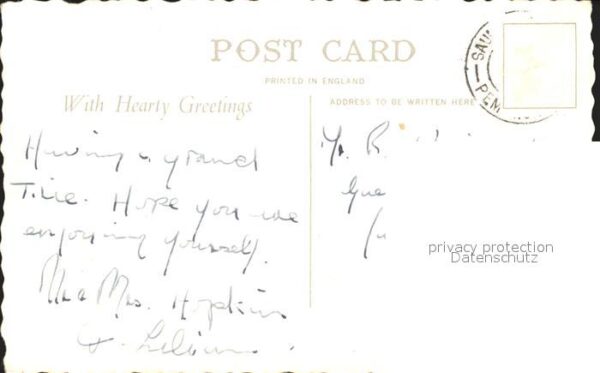 POST CARD
PRINTED IN ENGLAND
With Hearty Greetings
ADDRESS TO BE WRITTEN HERE
SAU
PEM
Having a grand
Time. Hope you are
enjoying yourself.
Mr & Mrs. Hopkins
&
privacy protection
Datenschutz